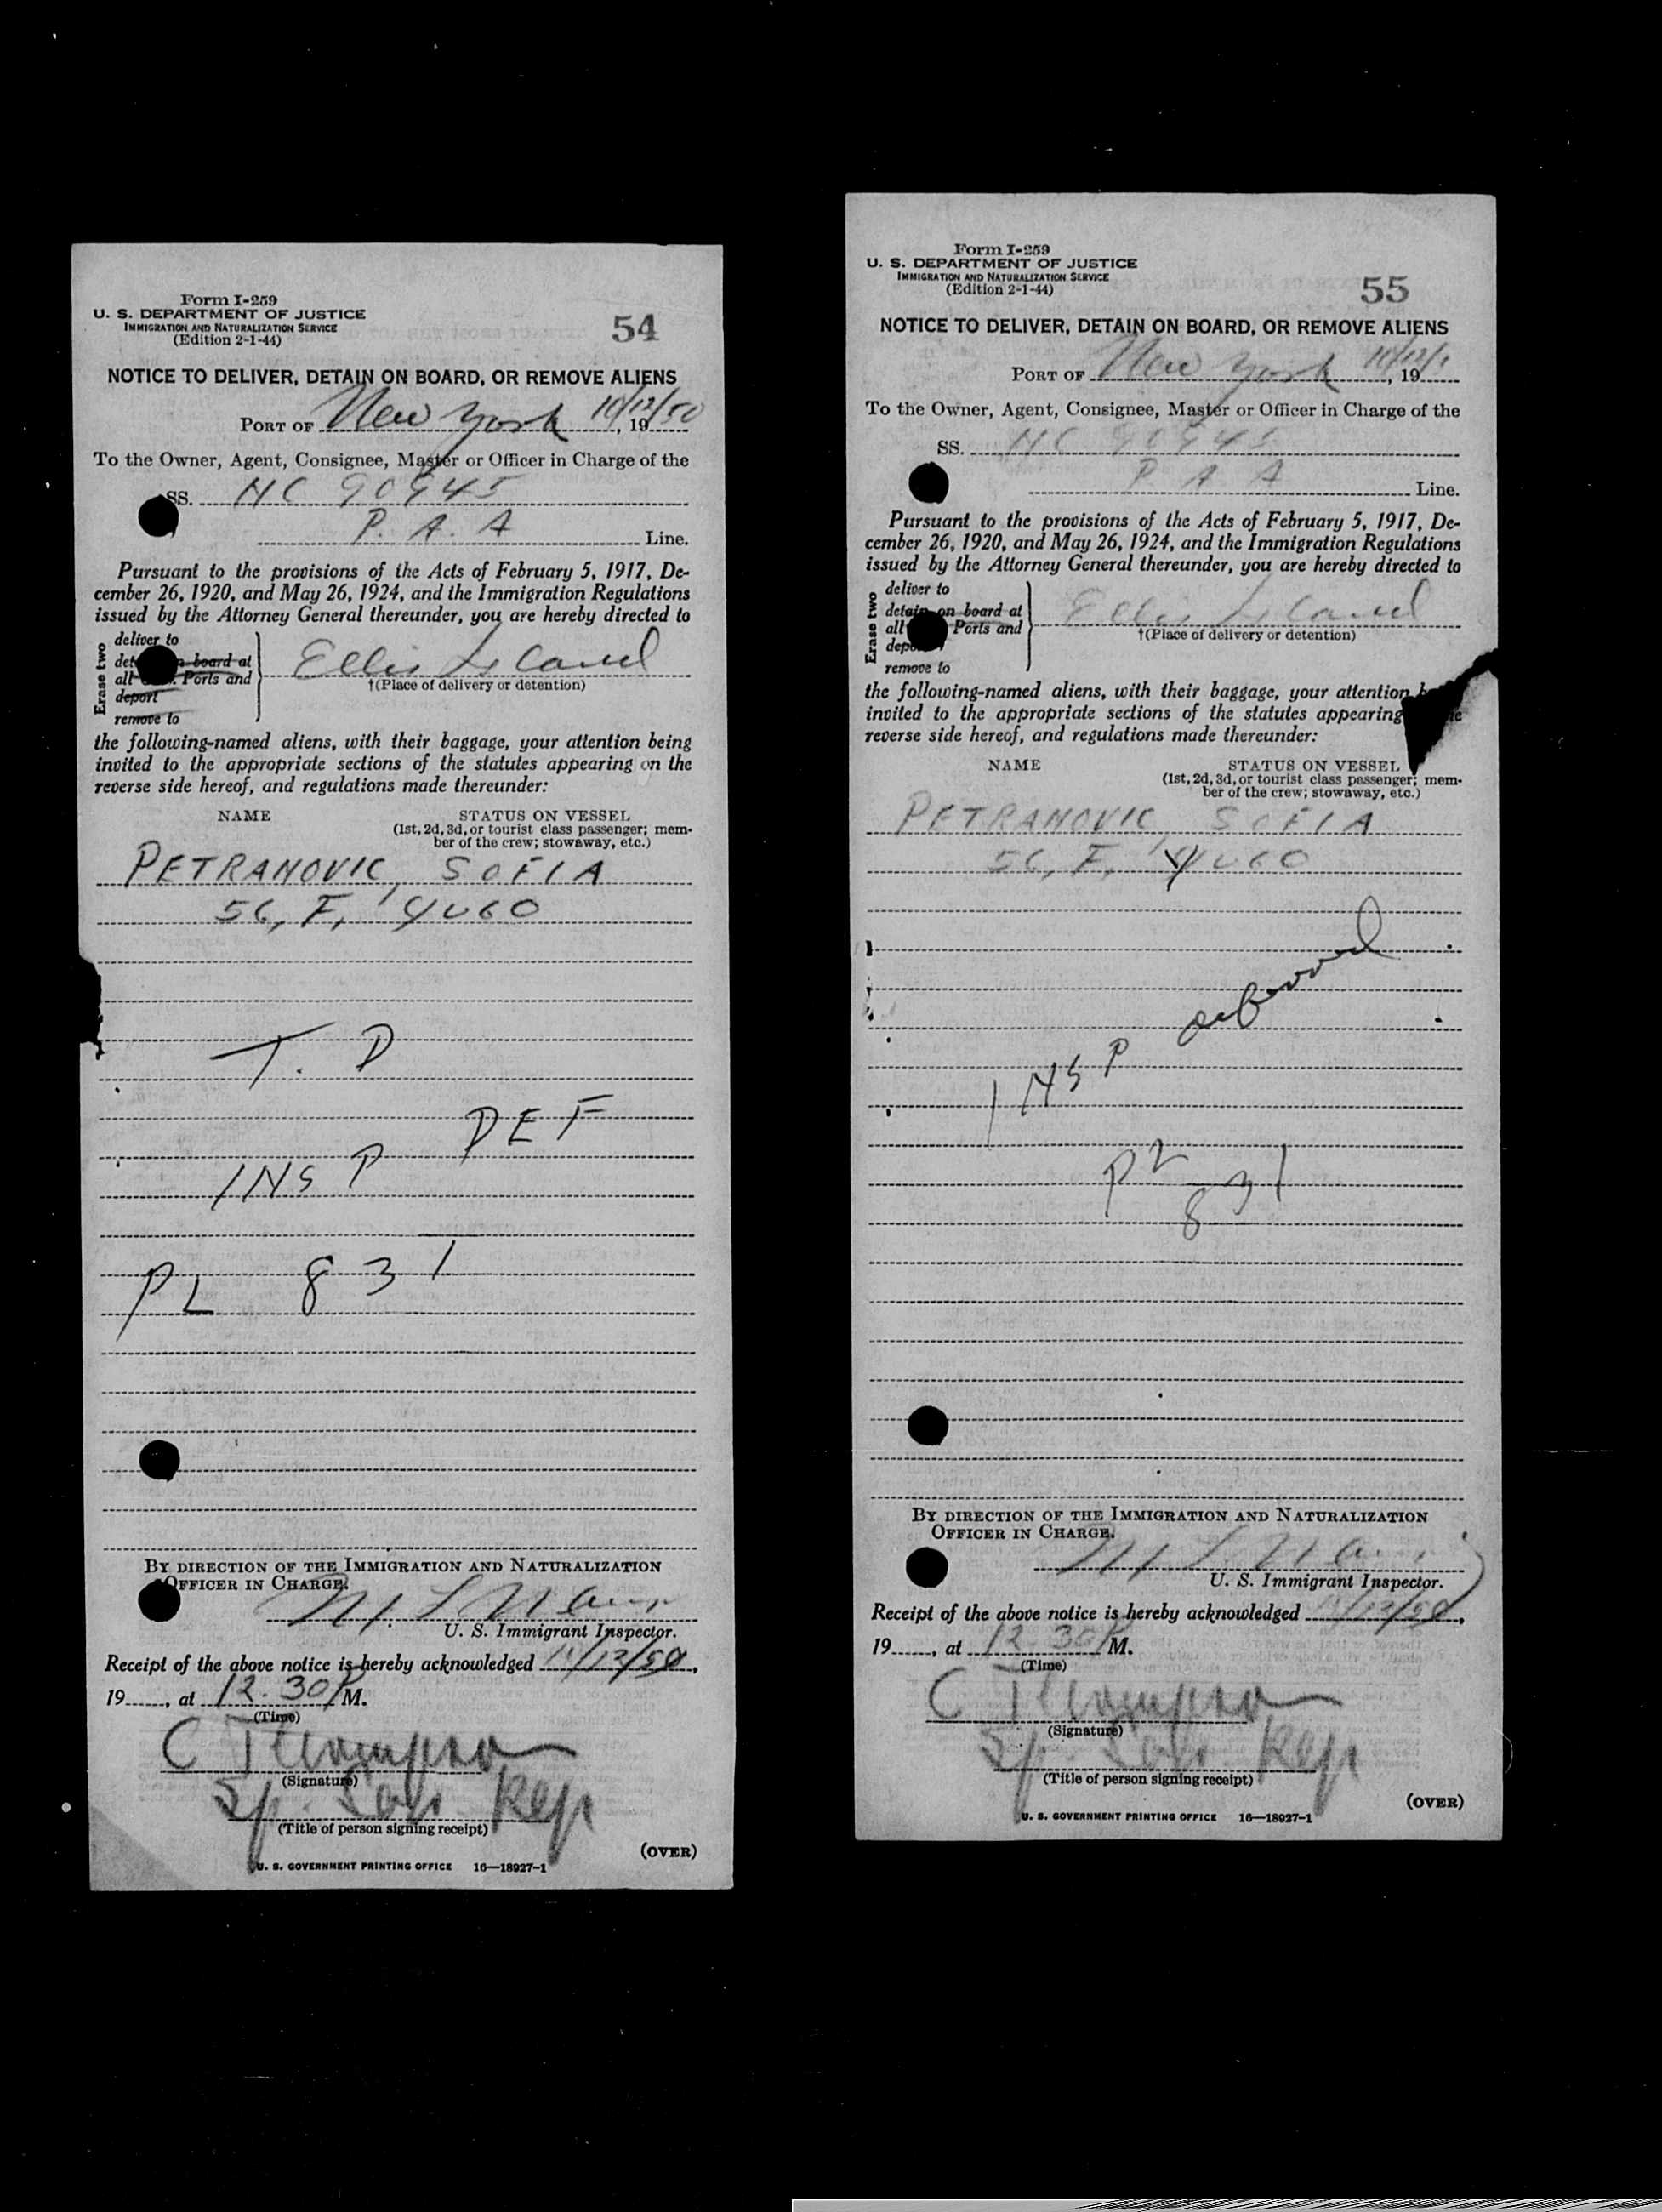 Form I-259
U. S. DEPARTMENT OF JUSTICE
IMMIGRATION AND NATURALIZATION SERVICE
(Edition 2-1-44)
54
NOTICE TO DELIVER, DETAIN ON BOARD, OR REMOVE ALIENS
PORT OF New York 10/12/50, 19
To the Owner, Agent, Consignee, Master or Officer in Charge of the
SS. NC 90945
P. A. A Line.
Pursuant to the provisions of the Acts of February 5, 1917, De-
cember 26, 1920, and May 26, 1924, and the Immigration Regulations
issued by the Attorney General thereunder, you are hereby directed to
Erase two
deliver to
board at
all Ports and
deport
remove to
Ellis Island
†(Place of delivery or detention)
the following-named aliens, with their baggage, your attention being
invited to the appropriate sections of the statutes appearing on the
reverse side hereof, and regulations made thereunder:
NAME STATUS ON VESSEL
(1st, 2d, 3d, or tourist class passenger; mem-
ber of the crew; stowaway, etc.)
PETRANOVIC, SOFIA
56, F, YUGO
T. D
DEF
INS P
PL 831
BY DIRECTION OF THE IMMIGRATION AND NATURALIZATION
OFFICER IN CHARGE.
U. S. Immigrant Inspector.
Receipt of the above notice is hereby acknowledged 10/12/50,
19, at 12.30 P M.
(Time)
C Thompson
(Signature)
Rep
(Title of person signing receipt)
(OVER)
U. S. GOVERNMENT PRINTING OFFICE 16—18927-1
Form I-259
U. S. DEPARTMENT OF JUSTICE
IMMIGRATION AND NATURALIZATION SERVICE
(Edition 2-1-44)
55
NOTICE TO DELIVER, DETAIN ON BOARD, OR REMOVE ALIENS
PORT OF New York 10/12/, 19
To the Owner, Agent, Consignee, Master or Officer in Charge of the
SS. NC 90945
P A A Line.
Pursuant to the provisions of the Acts of February 5, 1917, De-
cember 26, 1920, and May 26, 1924, and the Immigration Regulations
issued by the Attorney General thereunder, you are hereby directed to
Erase two
deliver to
detain on board at
all Ports and
remove to
Ellis Island
†(Place of delivery or detention)
the following-named aliens, with their baggage, your attention
invited to the appropriate sections of the statutes appearing
reverse side hereof, and regulations made thereunder:
NAME STATUS ON VESSEL
(1st, 2d, 3d, or tourist class passenger; mem-
ber of the crew; stowaway, etc.)
PETRANOVIC, SOFIA
56, F, YUGO
INS P
831
BY DIRECTION OF THE IMMIGRATION AND NATURALIZATION
OFFICER IN CHARGE.
U. S. Immigrant Inspector.
Receipt of the above notice is hereby acknowledged 10/12/50,
19, at 12.30 P M.
(Time)
C Thompson
(Signature)
Rep
(Title of person signing receipt)
(OVER)
U. S. GOVERNMENT PRINTING OFFICE 16—18927-1